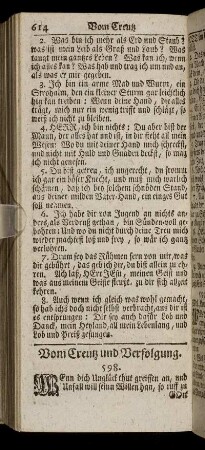 614 Vom Creutz
2. Was bin ich mehr als Erd und Staub?
was ist mein Leib als Graß und Laub? Was
taugt mein gantzes Leben? Was kan ich, wenn
ich alles kan? Was hab und trag ich um und an,
als was er mir gegeben.
3. Ich bin ein arme Mad und Wurm, ein
Strohalm, den ein kleiner Sturm gar leichtlich
hin kan treiben: Wenn deine Hand, die alles
trägt, mich nur ein wenig trifft und schlägt, so
weiß ich nicht zu bleiben.
4. HERR, ich bin nichts; Du aber bist der
Mann, der alles hat und in dir ist all mein
Wesen: Wo du mit deiner Hand mich schreckst,
und nicht mit Huld und Gnaden deckst, so mag
ich nicht genesen.
5. Du bist getreu, ich ungerecht, du fromm
ich gar ein böser Knecht, und muß mich warlich
schämen, daß ich bey solchem schnöden Stand,
aus deiner milden Vater-Hand, ein einges Gut
soll nehmen.
6. Ich habe dir von Jugend an nichts an-
ders, als Verdruß gethan, bin Sünden-voll ge-
bohren: Und wo du nicht durch deine Treu mich
wieder machest loß und frey, so wär ich gantz
verlohren.
7. Drum sey das Rühmen fern von mir, was
dir gebühret, das geb ich dir, du bist allein zu eh-
ren. Ach laß, HErr JEsu, meinen Geist und
was aus meinem Geiste fleußt, zu dir sich allzeit
kehren.
8. Auch wenn ich gleich was wohl gemacht,
so hab ichs doch nicht selbst verbracht, aus dir ist
es entsprungen: Dir sey auch dafür Lob und
Danck, mein Heyland, all mein Lebenlang, und
Lob und Preiß gesungen.
Vom Creutz und Verfolgung.
598.
WEnn dich Unglück thut greiffen an, und
Unfall will seinn Willen han, so ruff zu
GOtt